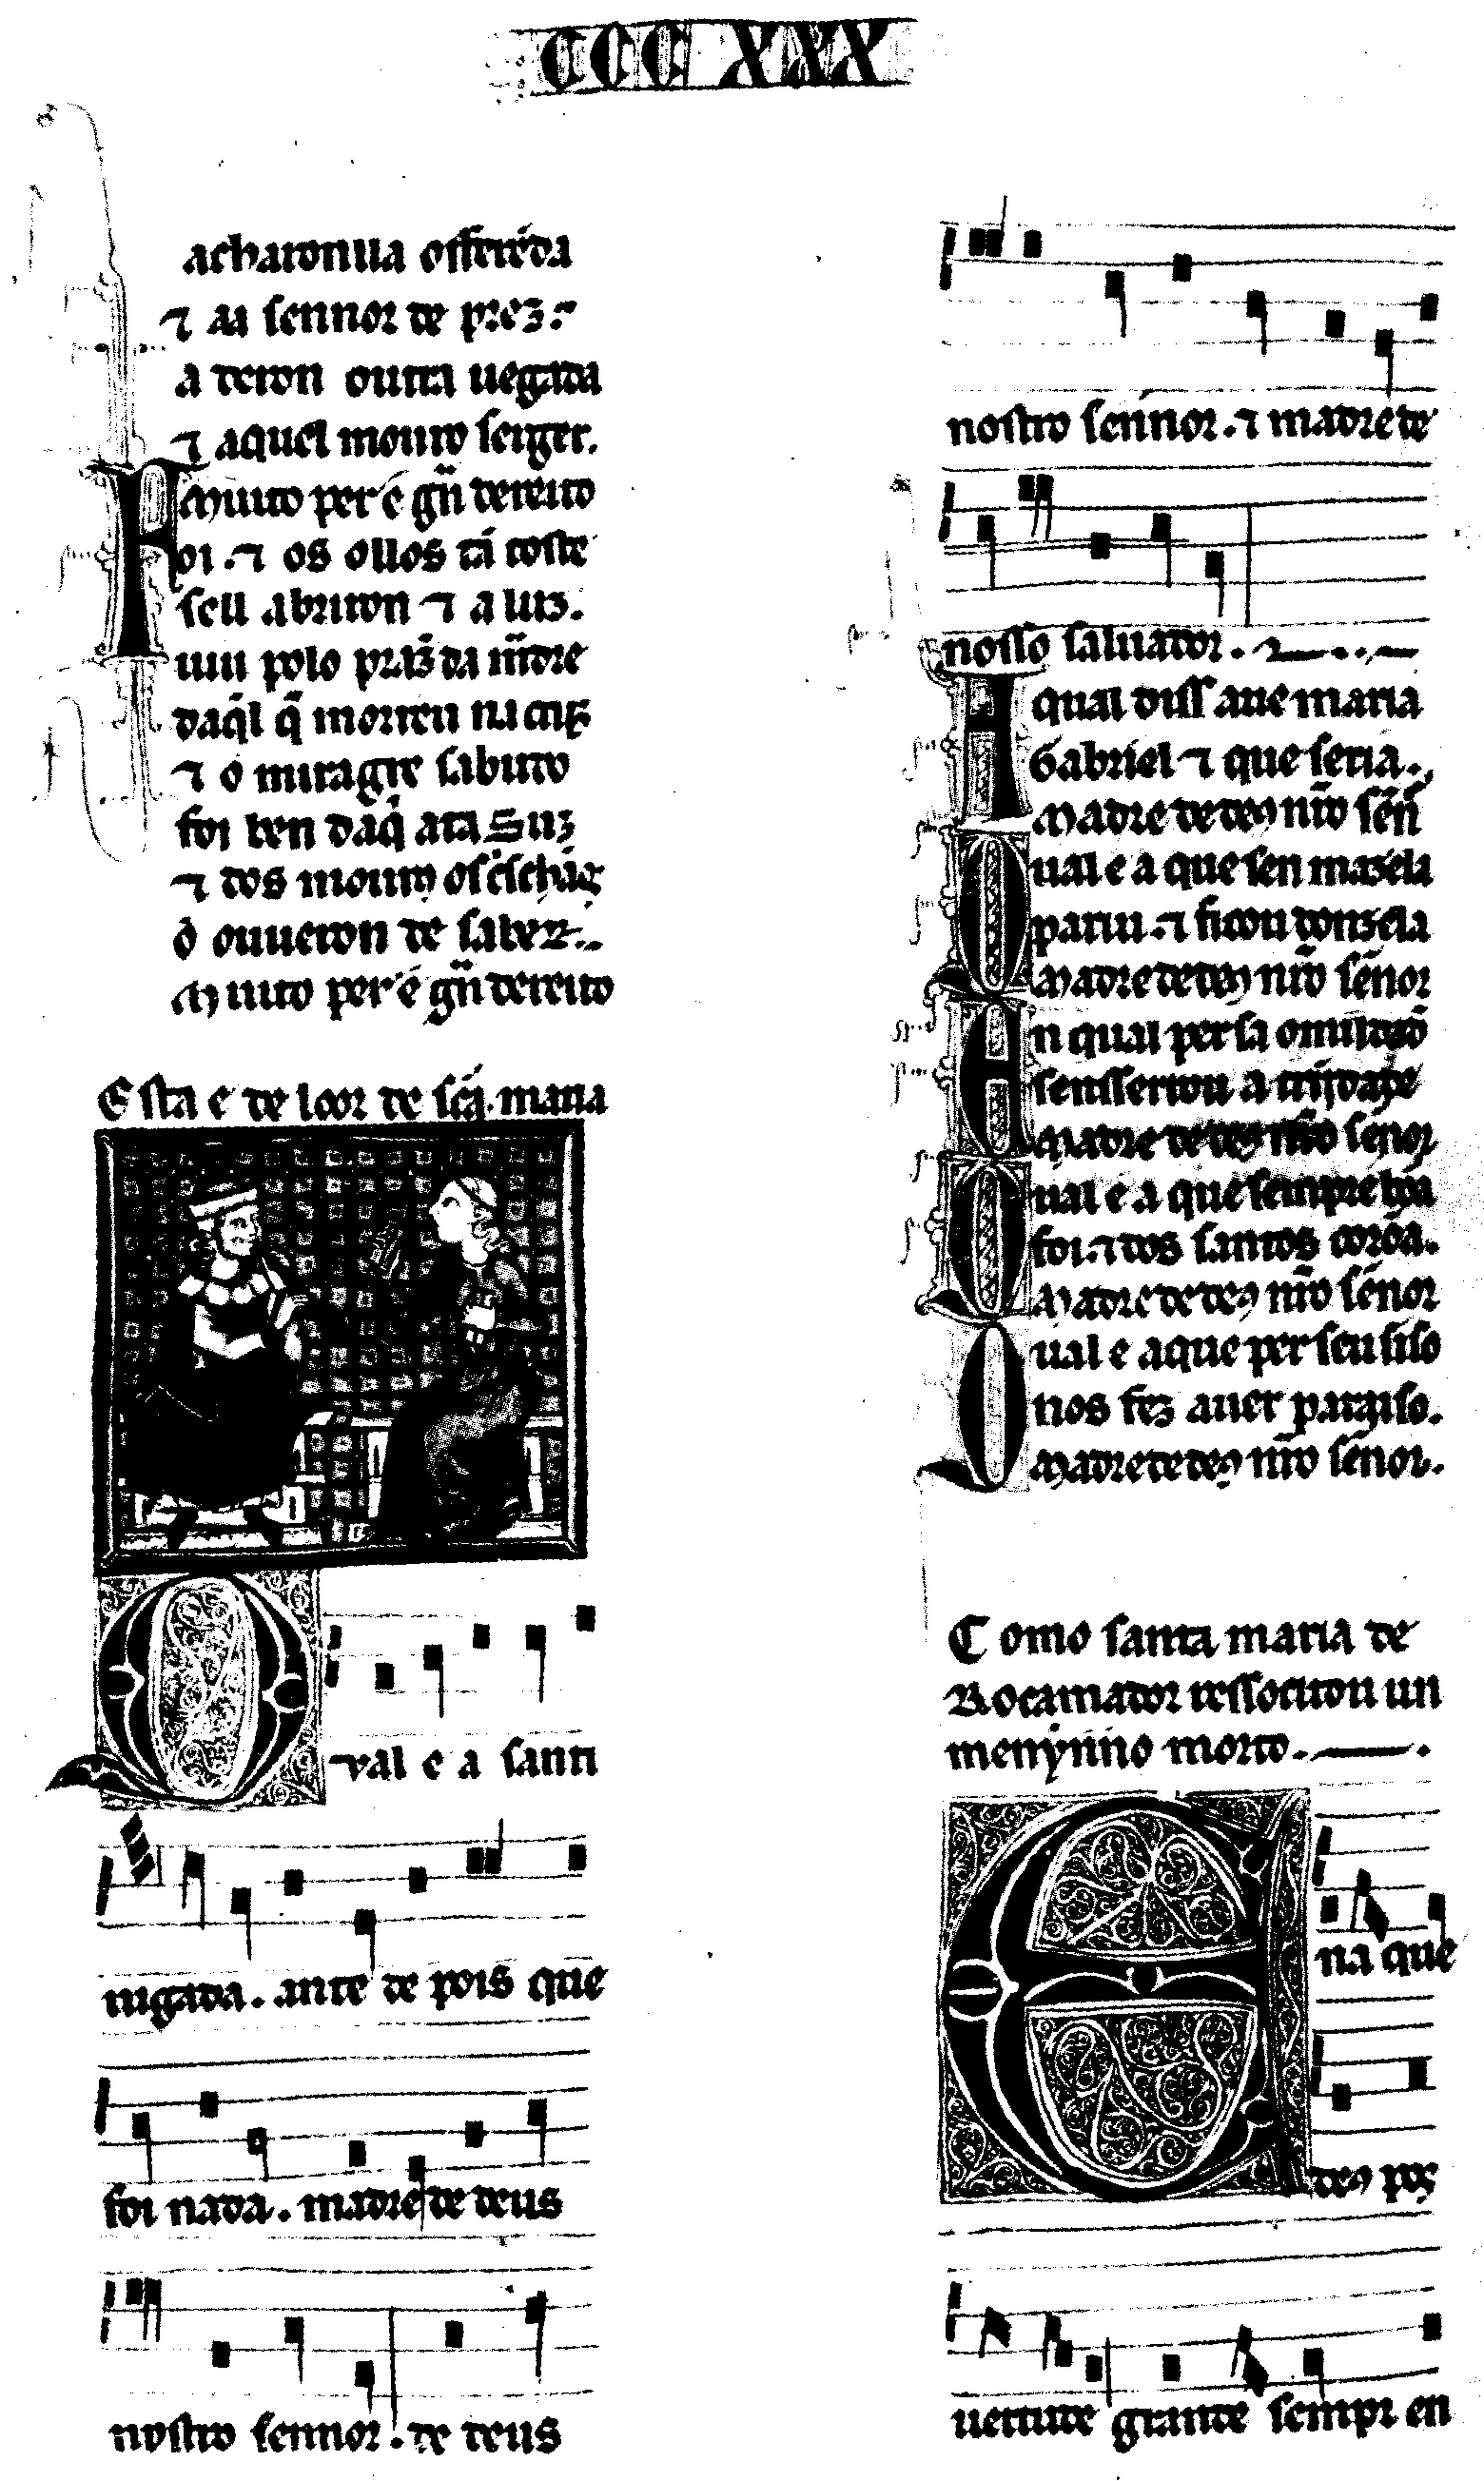 CCC XXX
acharonlla offerẽda
⁊ aa sennor de prez.
a deron outra uegada
⁊ aquel mouro seiger.
Muito per é gñ dereito
Foi . ⁊ os ollos tã toste
sell abriron ⁊ a luz.
uiu polo praz̃ da mãdre
daq̃l q̃ morreu na cruz
⁊ o miragre sabudo
foi ben daq̃ ata Suz
⁊ dos
o ouueron de saber.
Muito per é gñ dereito
Esta e de loor de scã. maria
Qval e a santi
uigada. ante de pois que
foi nada. madre de deus
nostro sennor. de deus
nostro sennor. ⁊ madre de
nosso saluador.
A qual diss aue maria
Gabriel ⁊ que seria.
Madre de deus nr̃o señ
Qual e a que sen mazela
pariu. ⁊ ficou donzela
Madre de deus nr̃o señor
En qual per sa omildade
sensserrou a trijdade
Madre de deus nr̃o señor
Qual e a que sempre bõa
foi. ⁊ dos santos corõa.
Madre de deus nr̃o señor
Qual e a que per seu siso
nos fez auer paraiso.
Madre de deus nr̃o señor.
Como santa maria de
Rocamador ressocitou un
menynno morto.
Ena que
deus pos
uertude grande sempr en